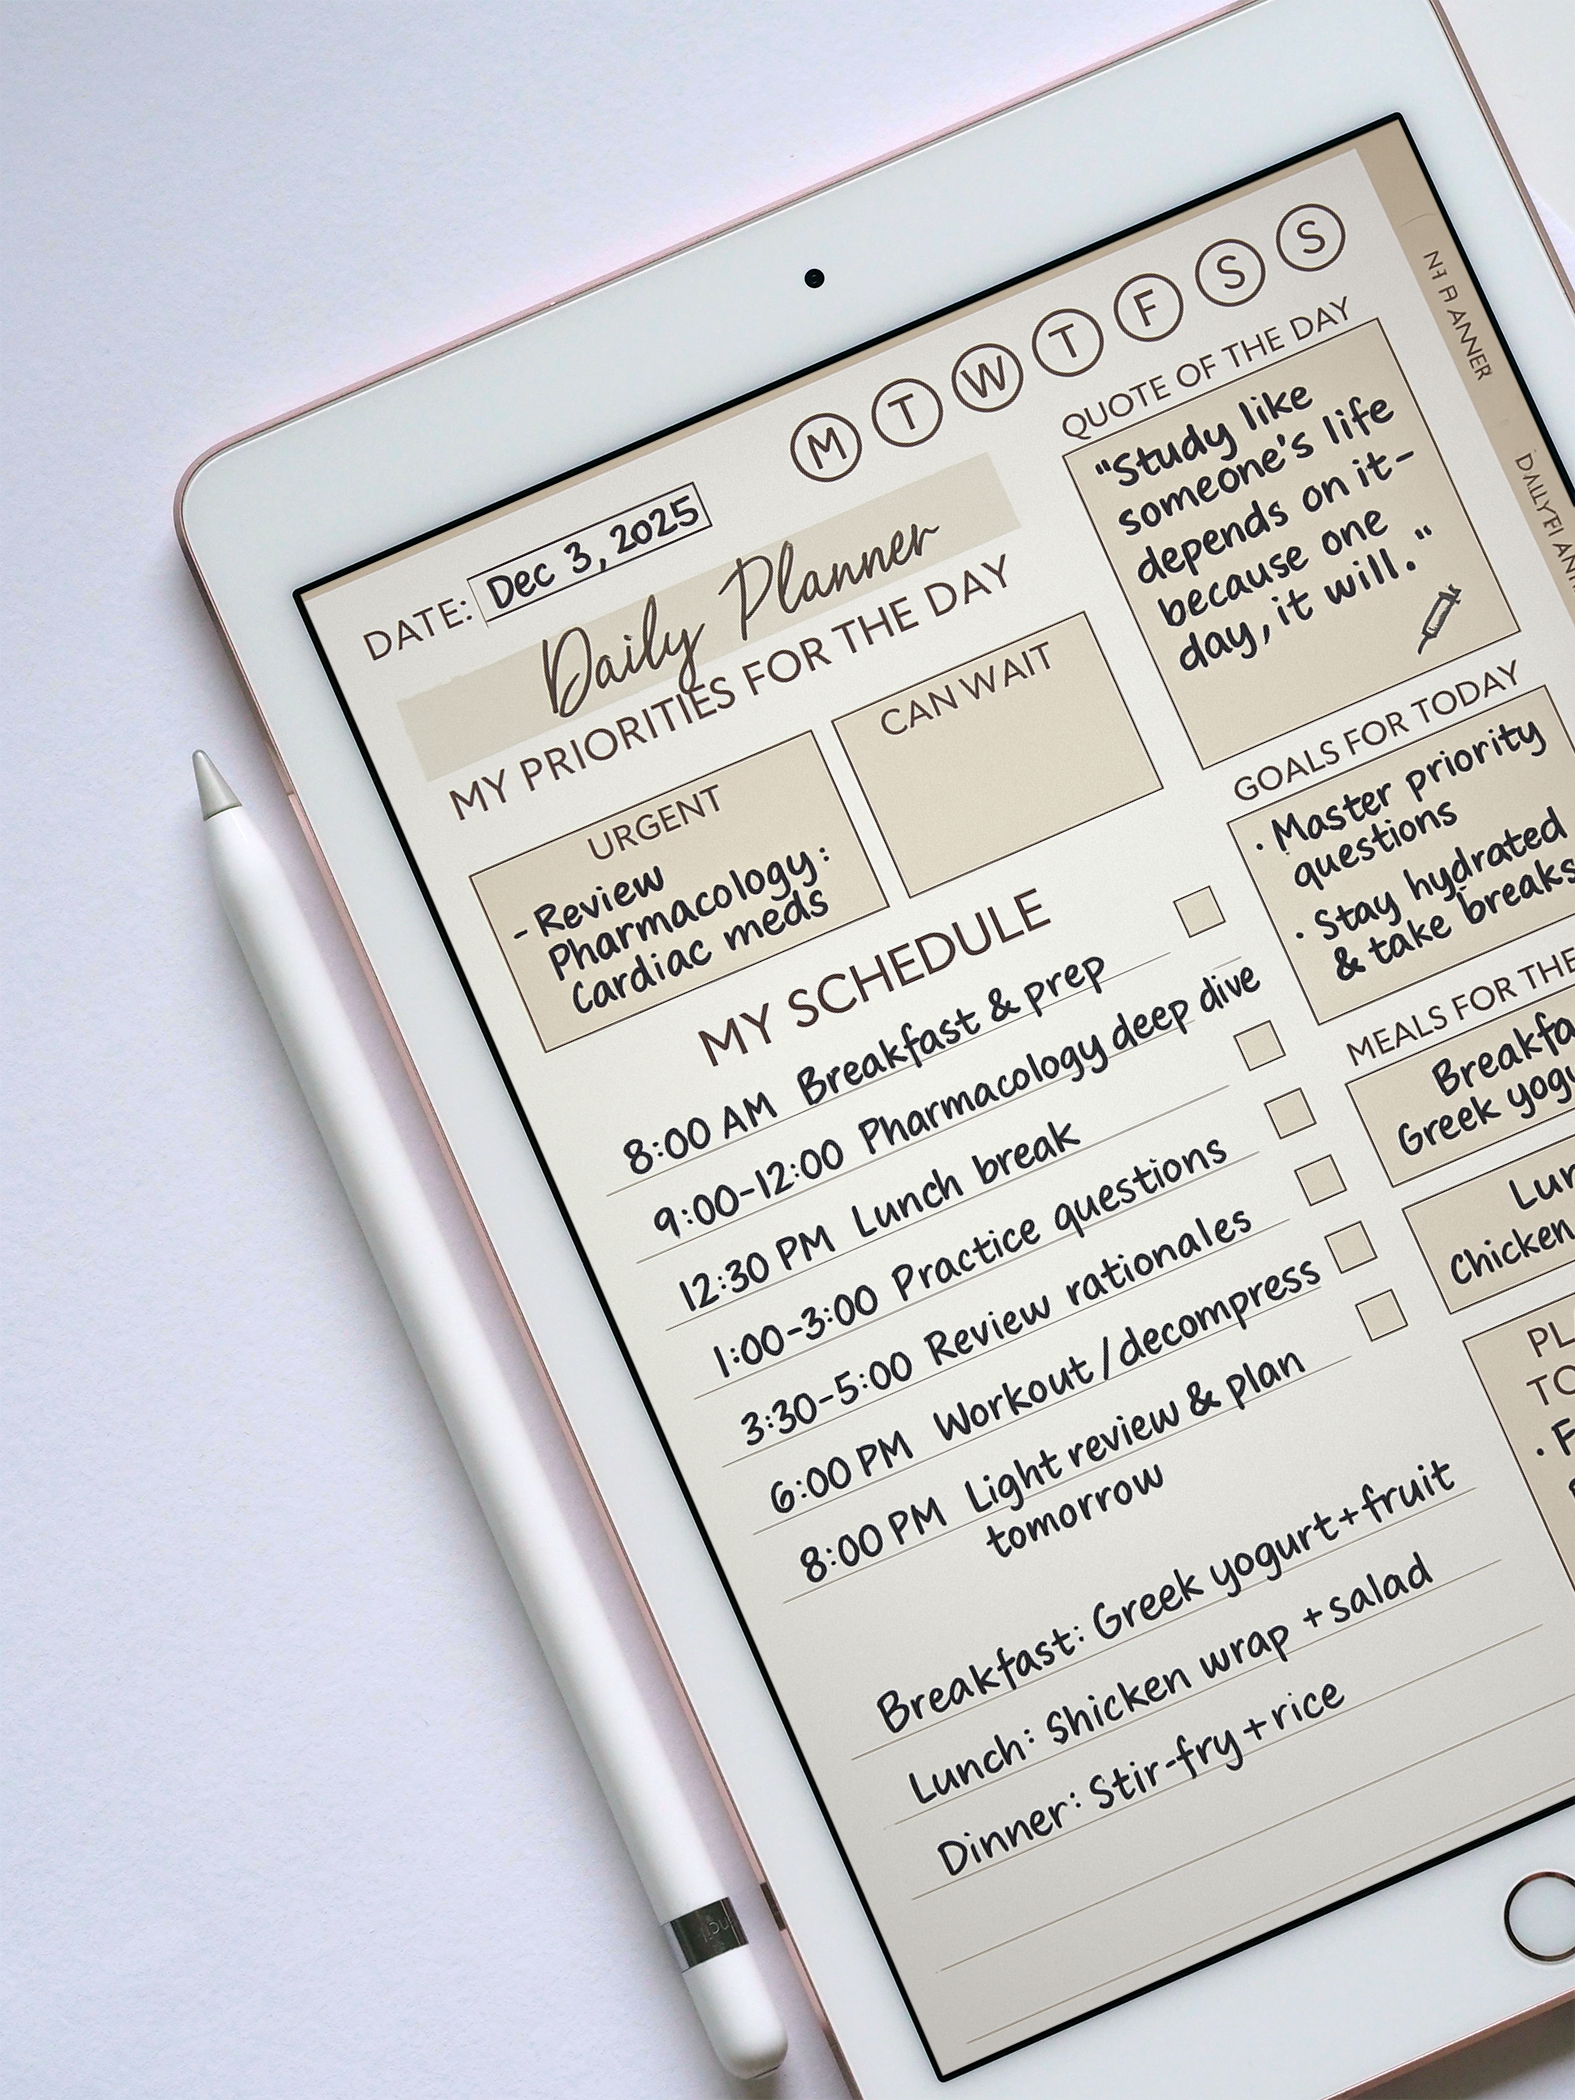 M T W T F S S
DATE: Dec 3, 2025
Daily Planner
MY PRIORITIES FOR THE DAY
URGENT
- Review
Pharmacology:
Cardiac meds
CAN WAIT
MY SCHEDULE
8:00 AM Breakfast & prep
9:00-12:00 Pharmacology deep dive
12:30 PM Lunch break
1:00-3:00 Practice questions
3:30-5:00 Review rationales
6:00 PM Workout/decompress
8:00 PM Light review & plan
tomorrow
Breakfast: Greek yogurt+fruit
Lunch: Shicken wrap + salad
Dinner: Stir-fry+rice
QUOTE OF THE DAY
"Study like
someone's life
depends on it-
because one
day, it will."
GOALS FOR TODAY
· Master priority
questions
· Stay hydrated
& take breaks
MEALS FOR THE
Breakfa
Greek yogu
Lun
Chicken
PL
TO
· F
ANNER